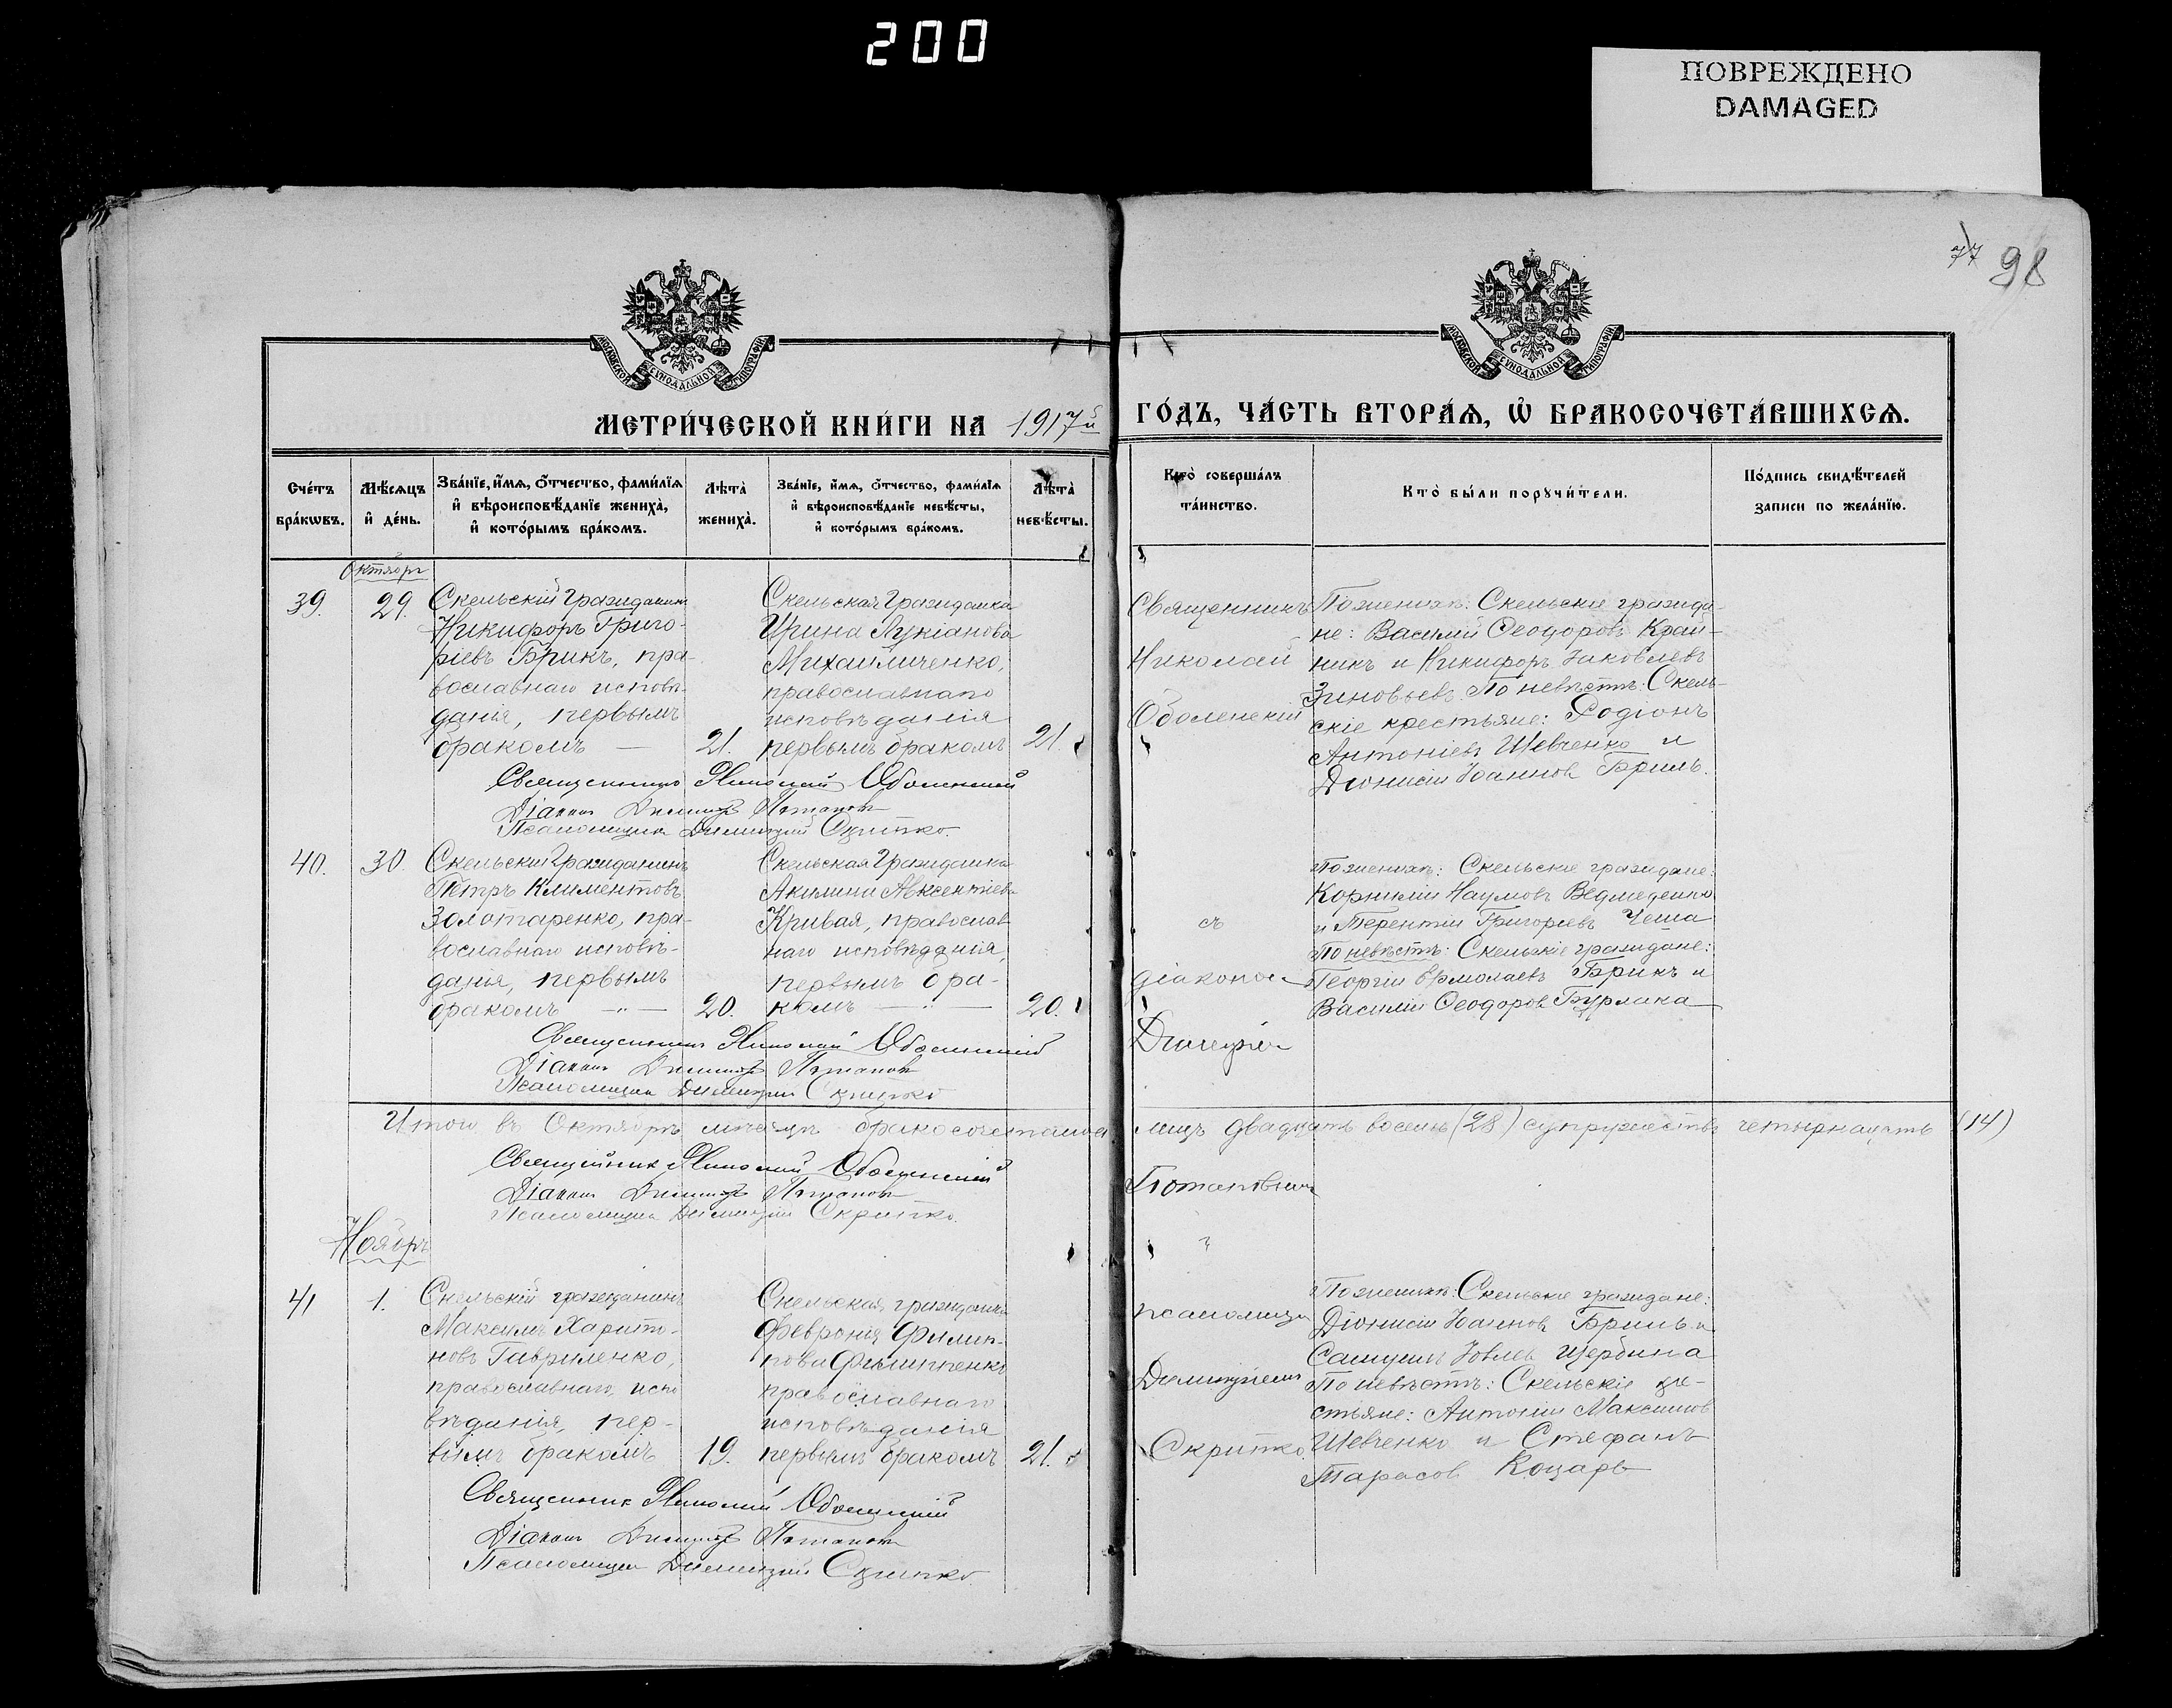 200
ПОВРЕЖДЕНО
DAMAGED
77 98
МОСКОВСКОЙ СѴНОДАЛЬНОЙ ТИПОГРАФІИ
МОСКОВСКОЙ СѴНОДАЛЬНОЙ ТИПОГРАФІИ
МЕТРИ́ЧЕСКОЙ КНИ́ГИ НА 1917й
ГО́ДЪ, ЧА́СТЬ ВТОРА́Ѧ, Ѡ҆ БРАКОСОЧЕТА́ВШИХСѦ.
Сче́тъ
бра́кѡвъ.
Мѣ́сѧцъ
и҆ де́нь.
Зва́нїе, и҆́мѧ, ѻ҆́тчество, фами́лїѧ
и҆ вѣроисповѣ́данїе жениха̀,
и҆ кото́рымъ бра́комъ.
Лѣ̀та̀
жениха̀.
Зва́нїе, и҆́мѧ, ѻ҆́тчество, фами́лїѧ
и҆ вѣроисповѣ́данїе невѣ́сты,
и҆ кото́рымъ бра́комъ.
Лѣ̀та̀
невѣ́сты.
Кто̀ соверша́лъ
та́инство.
Кто̀ бы́ли порꙋчи́тели.
По́дпись свидѣ́телей
записи по жела́нїю.
Октябрь
39.
29.
Скельскій гражданинъ
Никифоръ Григо-
ріевъ Брикъ, пра-
вославнаго исповѣ-
данія, первымъ
бракомъ —
21.
Скельская гражданка
Ирина Лукіанова
Михайличенко,
православнаго
исповѣданія
первымъ бракомъ
21.
Священникъ
Николай
Оболенскій
По женихѣ: Скельскіе гражда-
не: Василій Ѳеодоровъ Край-
никъ и Никифоръ Іаковлевъ
Зиновьевъ. По невѣстѣ: Скель-
скіе крестьяне: Родіонъ
Антоніевъ Шевченко и
Діонисій Іоанновъ Бриль.
Священникъ Николай Оболенскій
Діаконъ Димитрій Потаповъ
Псаломщикъ Димитрій Скрипко.
40.
30
Скельскій гражданинъ
Петръ Климентовъ
Золотаренко, пра-
вославнаго исповѣ-
данія, первымъ
бракомъ — " —
20.
Скельская гражданка
Акилина Авксентіева
Кривая, православ-
наго исповѣданія,
первымъ бра-
комъ — " —
20.
съ
діакономъ
Димитріемъ
По женихѣ: Скельскіе граждане:
Корнилій Наумовъ Ведмеденко
и Терентій Григорьевъ Чеша
По невѣстѣ: Скельскіе граждане:
Георгій Ермолаевъ Брикъ и
Василій Ѳеодоровъ Бурлака
Священникъ Николай Оболенскій
Діаконъ Димитрій Потаповъ
Псаломщикъ Димитрій Скрипко
Итого въ Октябрѣ мѣсяцѣ бракосочетались лицъ двадцать восемь (28) супружествъ четырнацать (14)
Священникъ Николай Оболенскій
Діаконъ Димитрій Потаповъ
Псаломщикъ Димитрій Скрипко.
Потаповымъ
и
Ноябрь
41
1.
Скельскій гражданинъ
Максимъ Харито-
новъ Гавриленко,
православнаго испо
вѣданія, пер-
вымъ бракомъ
19.
Скельская гражданка
Февронія Филип-
пова Филиппенко
православнаго
исповѣданія
первымъ бракомъ
21.
псаломщи
Димитріемъ
Скрипко.
По женихѣ: Скельскіе граждане:
Діонисій Іоанновъ Бриль и
Самуилъ Іовлевъ Щербина
По невѣстѣ: Скельскіе кре-
стьяне: Антоній Максимов
Шевченко и Стефанъ
Тарасов Коцарь
Священникъ Николай Оболенскій
Діаконъ Димитрій Потаповъ
Псаломщикъ Димитрій Скрипко